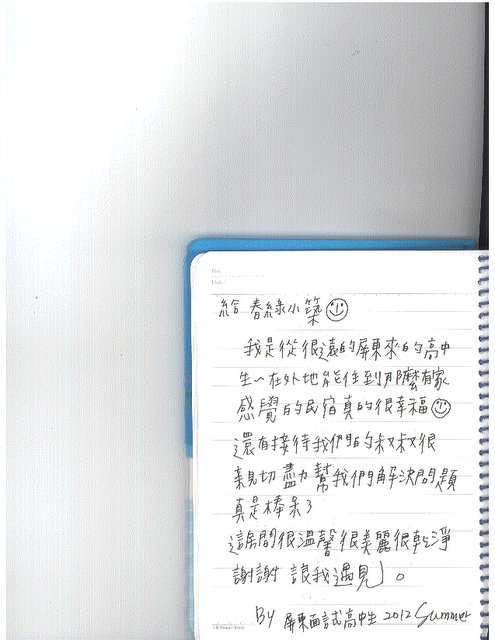 No.
Date
給 春綠小築
我是從很遠的屏東來的高中
生~在外地能住到那麼有家
感覺的民宿真的很幸福
還有接待我們的叔叔很
親切盡力幫我們解決問題
真是棒呆了
這房間很溫馨很美麗很乾淨
謝謝 讓我遇見」。
BY 屏東面試高中生 2012 Summer